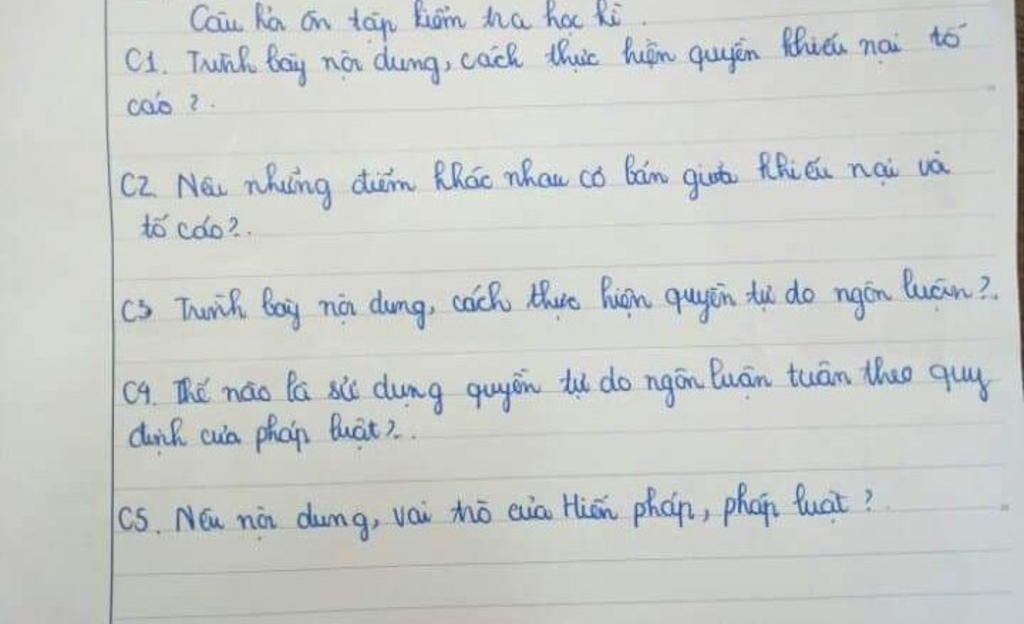 Câu hỏi ôn tập kiểm tra học kì.
C1. Trình bày nội dung, cách thực hiện quyền khiếu nại tố
cáo ?.
C2 Nêu những điểm khác nhau cơ bản giữa khiếu nại và
tố cáo?.
C3 Trình bày nội dung, cách thực hiện quyền tự do ngôn luận?.
C4. Thế nào là sử dụng quyền tự do ngôn luận tuân theo quy
định của pháp luật?.
C5. Nêu nội dung, vai trò của Hiến pháp, pháp luật ?